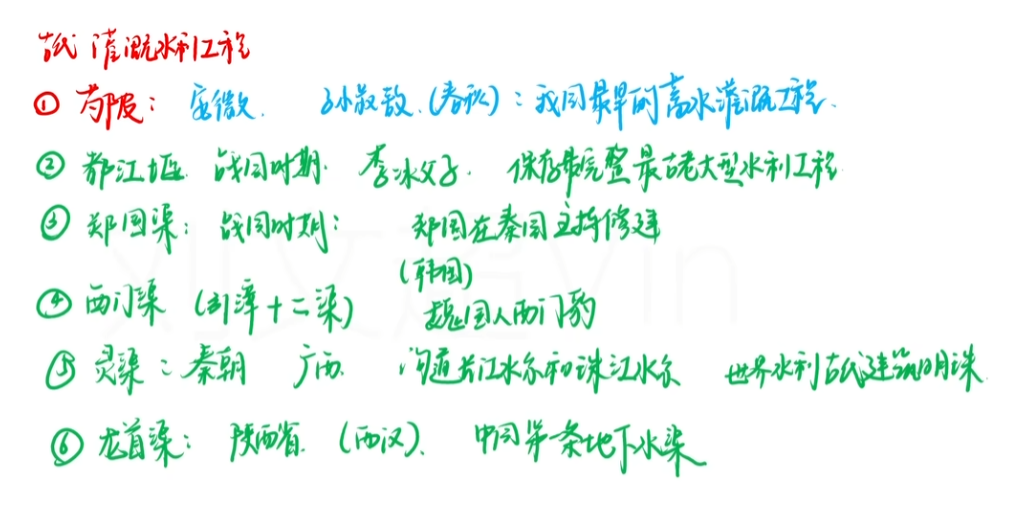 古代灌溉水利工程
① 芍陂：安徽. 孙叔敖.(春秋)：我国最早的蓄水灌溉工程.
② 都江堰. 战国时期. 李冰父子. 保存最完整最古老大型水利工程
③ 郑国渠：战国时期： 郑国在秦国主持修建
(韩国)
④ 西门渠 (引漳十二渠) 魏国人西门豹
⑤ 灵渠：秦朝 广西. 沟通长江水系和珠江水系 世界水利古代建筑明珠.
⑥ 龙首渠：陕西省. (西汉). 中国第一条地下水渠